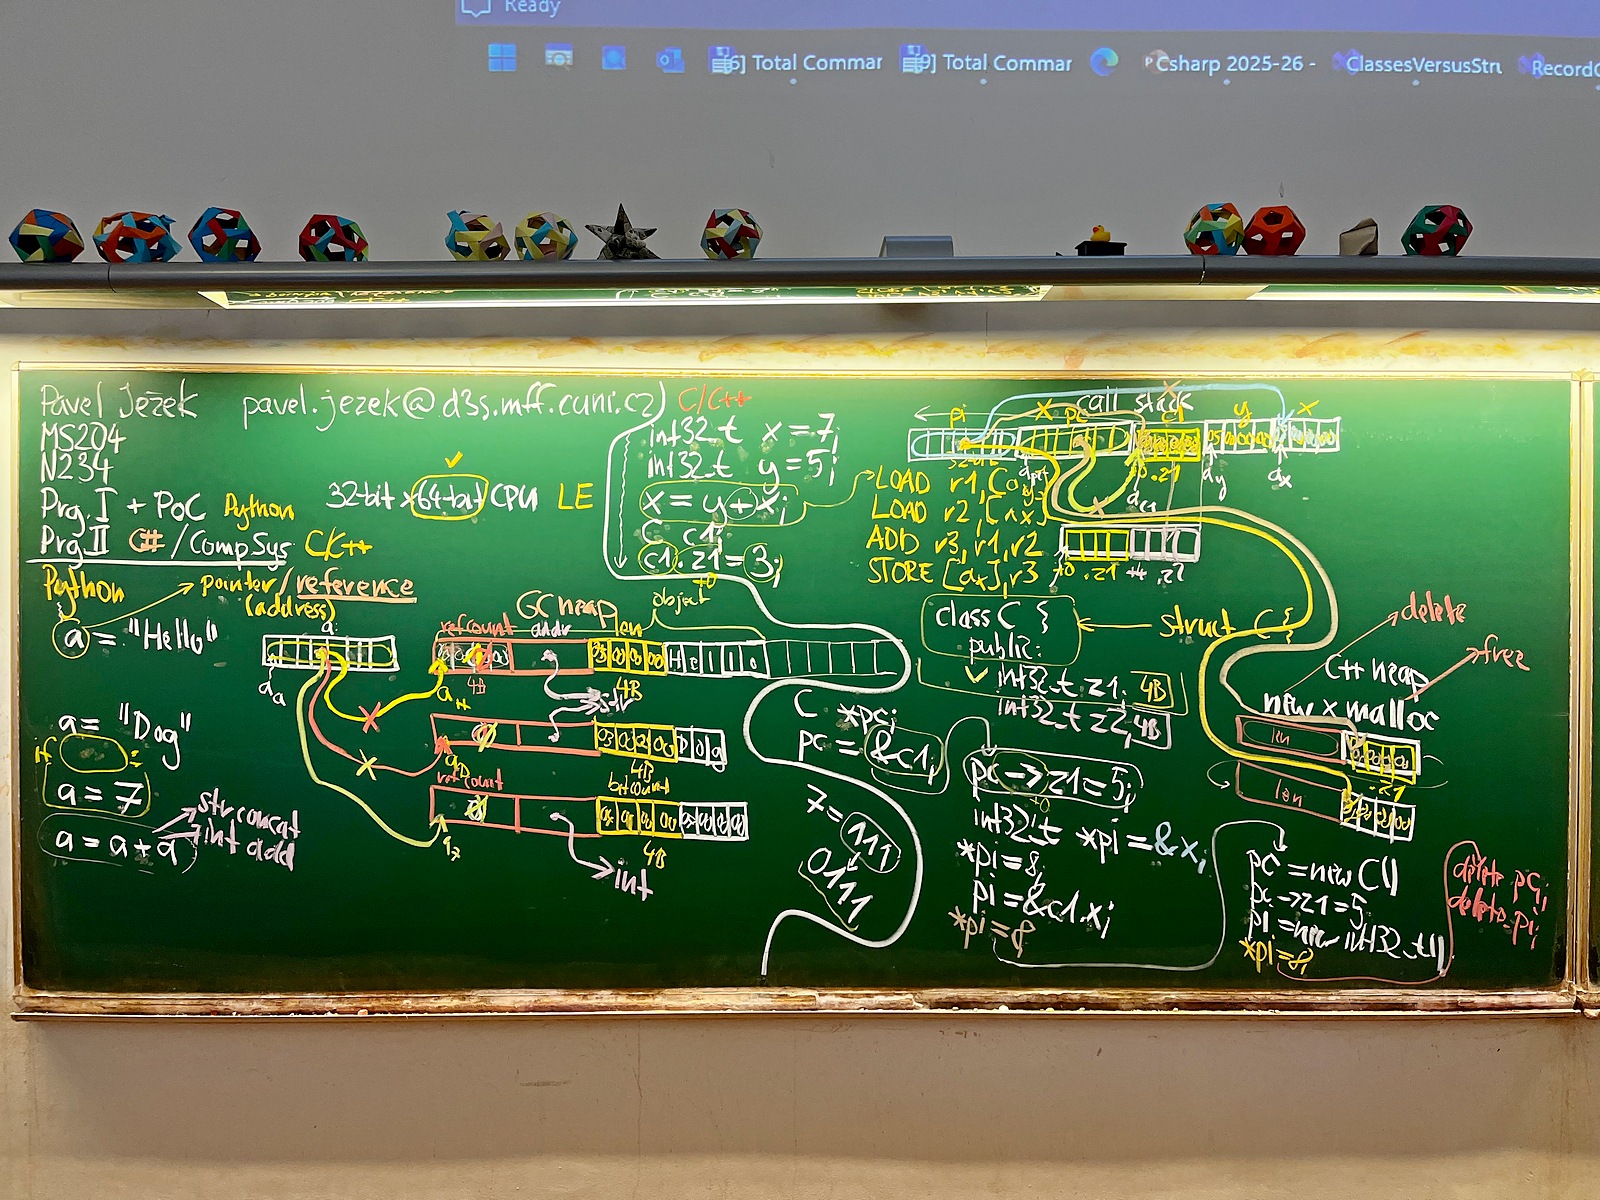 Ready
6] Total Commar
9] Total Commar
Csharp 2025-26 -
ClassesVersusStru
RecordC
Pavel Ježek pavel.jezek@d3s.mff.cuni.cz
MS204
N234
Prg. I + PoC Python
Prg II C# / CompSys C/C++
32-bit x 64-bit CPU LE
Python
pointer/reference
(address)
a = "Hello"
a = "Dog"
if :
a = 7
a = a + a
str concat
int add
GC heap
object
refcount addr len
a
H e l l o
4B 4B
str
D o g
4B
refcount
bitcount
4B
int
C/C++
int32_t x = 7;
int32_t y = 5;
x = y + x;
C c1;
c1.z1 = 3;
+0
LOAD r1, [ay]
LOAD r2, [ax]
ADD r3, r1, r2
STORE [ax], r3
call stack
pi pc c1 y x
ay
ax
+0 .z1 +4 .z2
class C {
public:
int32_t z1; 4B
int32_t z2; 4B
struct C {
C *pc;
pc = &c1;
7 = 111
0111
pc -> z1 = 5;
+0
int32_t *pi = &x;
*pi = 8;
pi = &c1.x;
*pi = 8
delete
free
C++ heap
new x malloc
len
.z1
len
pc = new C()
pc -> z1 = 5;
pi = new int32_t()
*pi = 8;
delete pc;
delete pi;